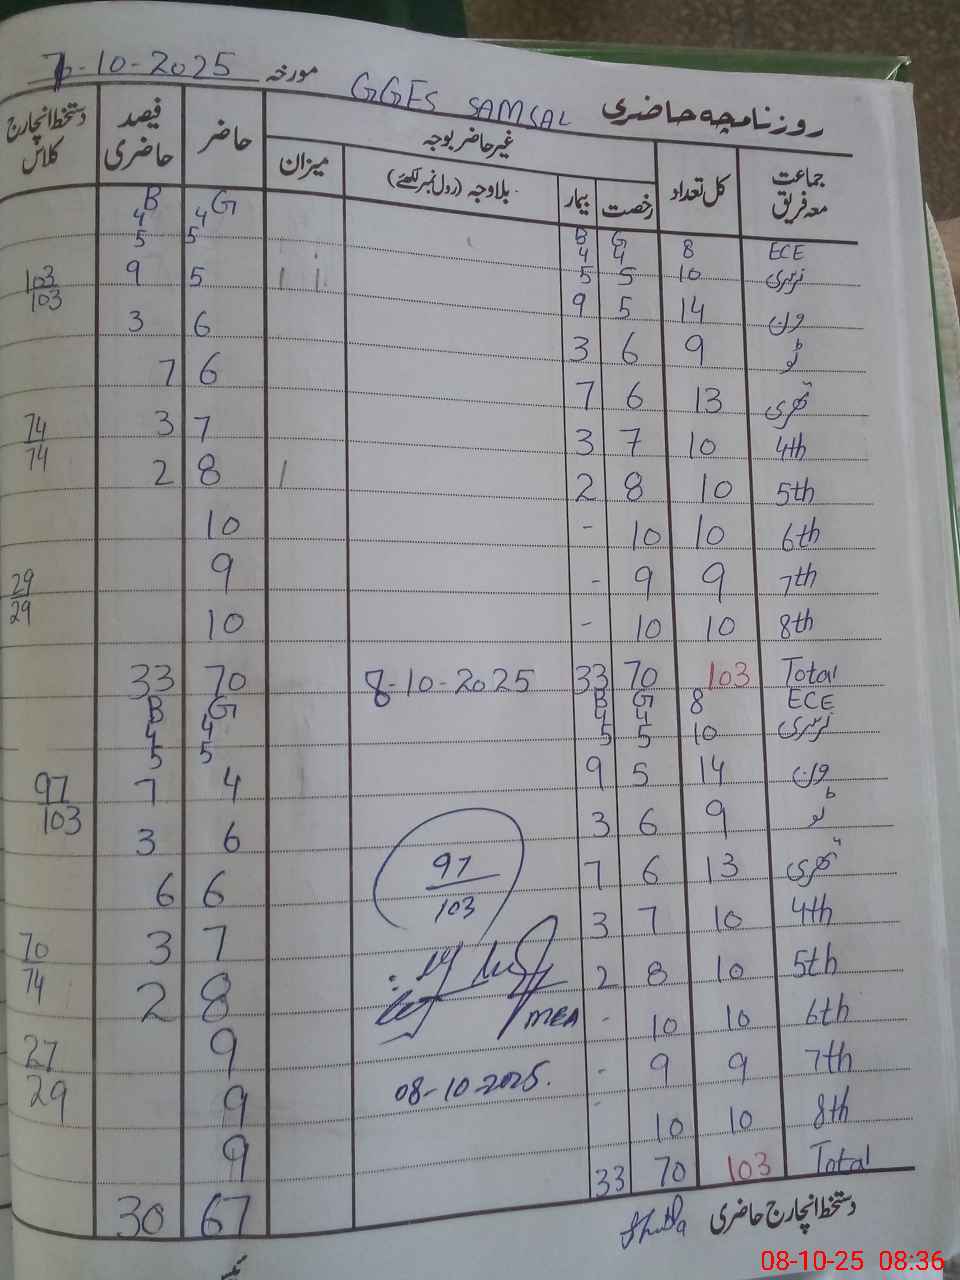 روزنامچہ حاضری GGES SAMSAL مورخہ 7-10-2025
جماعت معہ فریق کل تعداد غیر حاضر بوجہ حاضر فیصد حاضری دستخط انچارج کلاس
رخصت بیمار بلاوجہ (رول نمبر لکھئے) میزان
G B G B
ECE 8 4 4 4 4
نرسری 10 5 5 5 5
ون 14 5 9 5 9 103/103
ٹو 9 6 3 6 3
تھری 13 6 7 6 7
4th 10 7 3 7 3 74/74
5th 10 8 2 8 2
6th 10 10 - 10
7th 9 9 - 9 29/29
8th 10 10 - 10
Total 103 70 33 8-10-2025 70 33
G B G B
ECE 8 4 4 4 4
نرسری 10 5 5 5 5
ون 14 5 9 4 7 97/103
ٹو 9 6 3 6 3
تھری 13 6 7 97/103 6 6
4th 10 7 3 7 3 70/74
5th 10 8 2 8 2
6th 10 10 - MEA 9 27/29
7th 9 9 - 08-10-2025. 9
8th 10 10 - 9
Total 103 70 33 67 30
دستخط انچارج حاضری
08-10-25 08:36